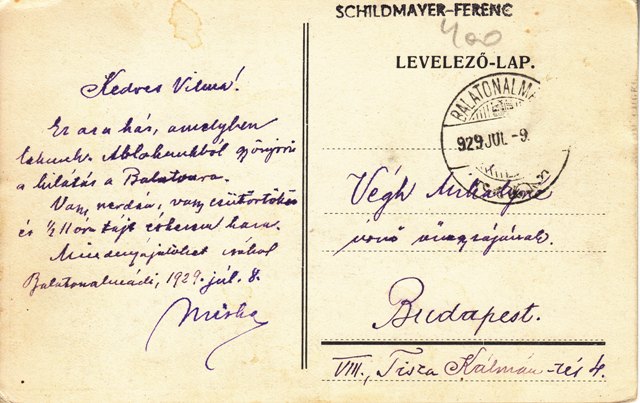 SCHILDMAYER-FERENC
400
LEVELEZŐ-LAP.
BALATONALMÁ
929 JUL -9.
Kedves Vilma!
Ez az a ház, amelyben
lakunk. Ablakunkból gyönyörű
a kilátás a Balatonra.
Vagy szerdán, vagy csütörtökön
és ½11 óra tájt érkezem haza.
Mindnyájatokat csókol
Balatonalmádi, 1929. júl. 8.
Miska
Végh Mihályné
úrnő őnagyságának.
Budapest.
VIII., Tisza Kálmán-tér 4.